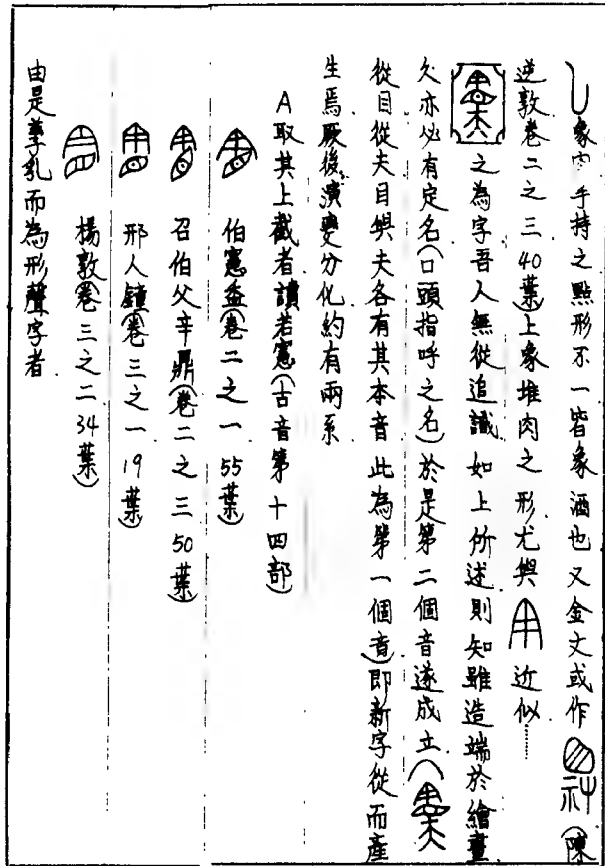 象宀手持之點形不一皆象酒也又金文或作（陳
逆敦卷二之三40葉）上象堆肉之形尤與近似……
之為字吾人無從追識如上所述則知雖造端於繪畫
久亦必有定名（口頭指呼之名）於是第二個音遂成立（
從目從夫目與夫各有其本音此為第一個音）即新字從而產
生焉厥後演變分化約有兩系
A取其上截者讀若憲（古音第十四部）
伯憲盉（卷二之一55葉）
召伯父辛鼎（卷二之三50葉）
邢人鐘（卷三之一19葉）
楊敦（卷三之二34葉）
由是孳乳而為形聲字者